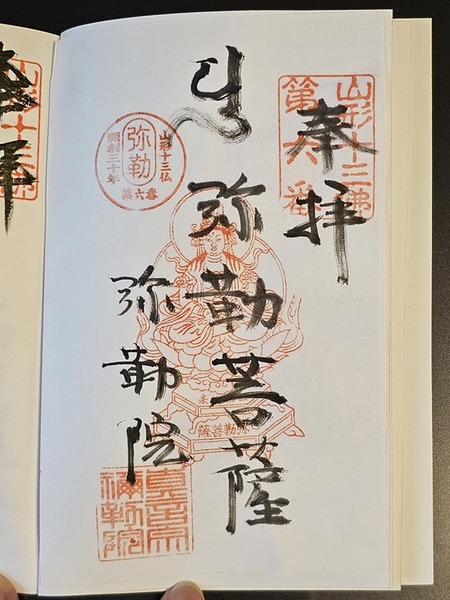 山形十三佛
第六番
奉拝
弥勒菩薩
弥勒菩薩
山形十三仏
弥勒
開創三十年
第六番
弥勒院
真言宗
彌勒院
奉拝